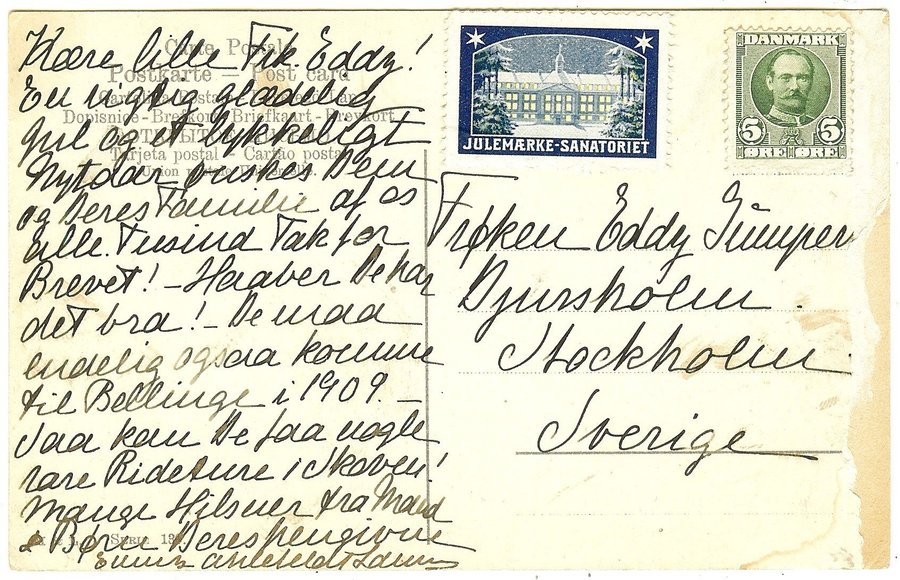 Carte Postale
Postkarte — Post card
Dopisnice - Brevkort - Briefkaart - Brevkort
Tarjeta postal — Cartão postal
Kære lille Frk. Eddy!
En rigtig glædelig
Jul og et lykkeligt
Nytaar ønskes Dem
og Deres Familie af os
alle. Tusind Tak for
Brevet! — Haaber De har
det bra! — De maa
endelig ogsaa komme
til Bellinge i 1909. —
Saa kan De faa nogle
rare Rideture i Skoven!
Mange Hilsner fra Mand
& Børn Deres hengivne
Ahlefeldt Laurvig
Serie 13
JULEMÆRKE-SANATORIET
DANMARK
5 5
ØRE ØRE
Frøken Eddy
Djursholm.
Stockholm.
Sverige